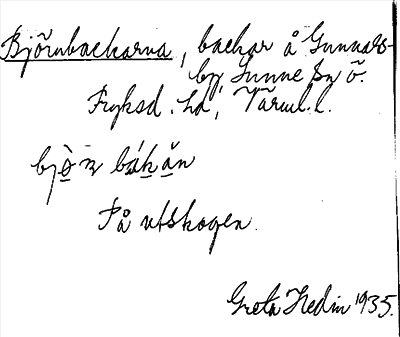 Björnbackarna, backar å Gunnars-
by, Sunne sn ö.
Fryksd. hd, Värml. l.
På utskogen.
Greta Hedin 1935.